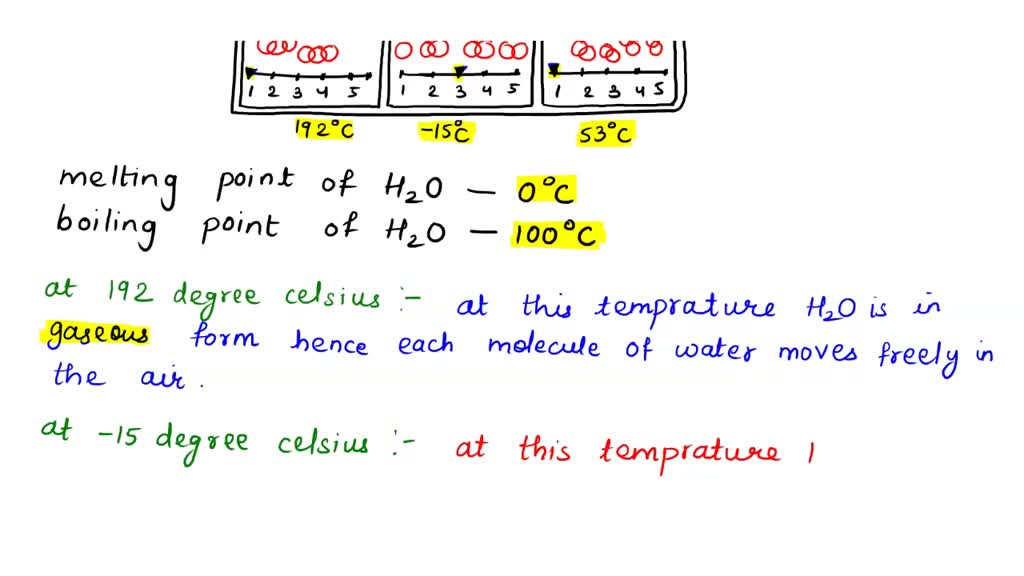 1 2 3 4 5 1 2 3 4 5 1 2 3 4 5
192°C -15°C 53°C
melting point of H₂O – 0°C
boiling point of H₂O – 100°C
at 192 degree celsius :- at this temprature H₂O is in
gaseous form hence each molecule of water moves freely in
the air.
at -15 degree celsius :- at this temprature